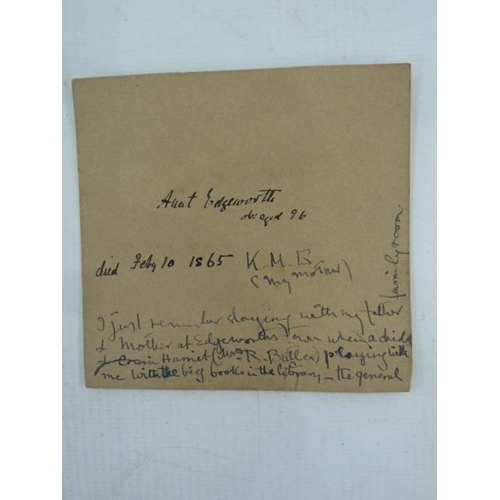 Aunt Edgeworth
ob: aged 96
died Feby 10 1865
K M B
(my mother)
I just remember staying with my father
& Mother at Edgeworths Town when a child
& Cousin Harriet (Mrs R. Butler) playing with
me with the big books in the library — the general
family room.